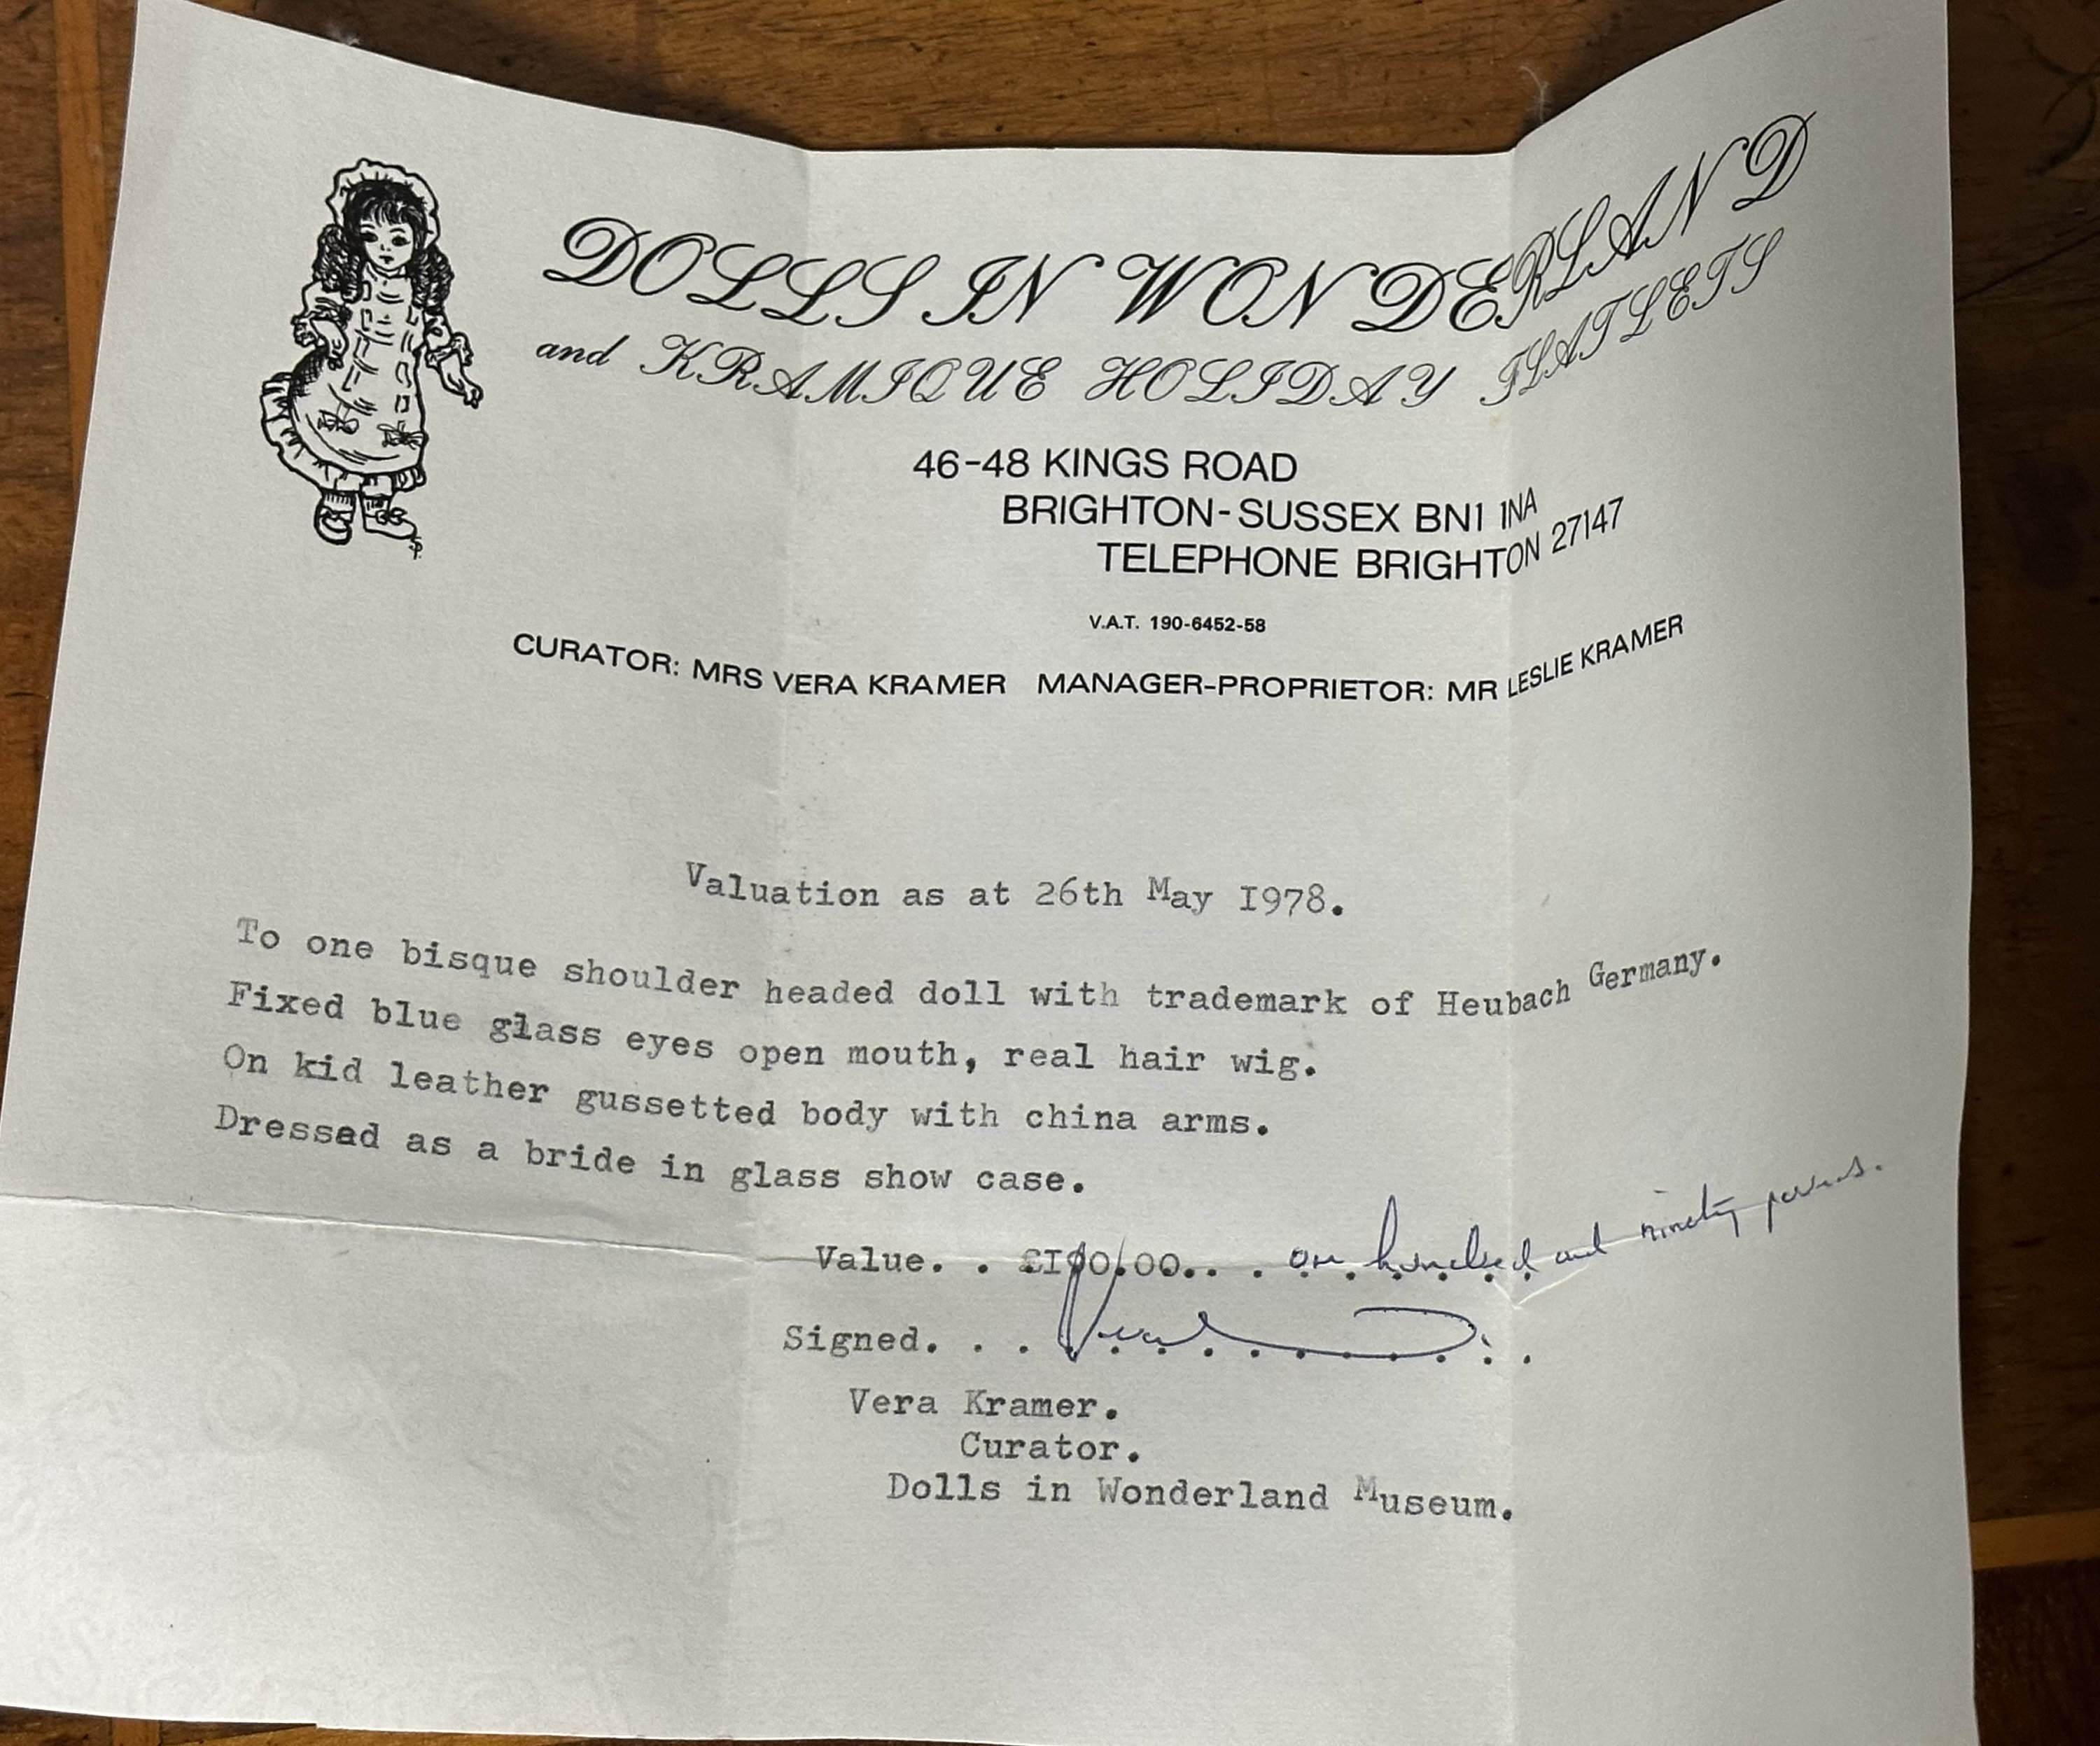 DOLLS IN WONDERLAND
and KRAMIQUE HOLIDAY FLATLETS
46-48 KINGS ROAD
BRIGHTON-SUSSEX BN1 1NA
TELEPHONE BRIGHTON 27147
V.A.T. 190-6452-58
CURATOR: MRS VERA KRAMER MANAGER-PROPRIETOR: MR LESLIE KRAMER
Valuation as at 26th May I978.
To one bisque shoulder headed doll with trademark of Heubach Germany.
Fixed blue glass eyes open mouth, real hair wig.
On kid leather gussetted body with china arms.
Dressed as a bride in glass show case.
Value. . £I90.00.. . one hundred and ninety pounds.
Signed. . .
Vera Kramer.
Curator.
Dolls in Wonderland Museum.